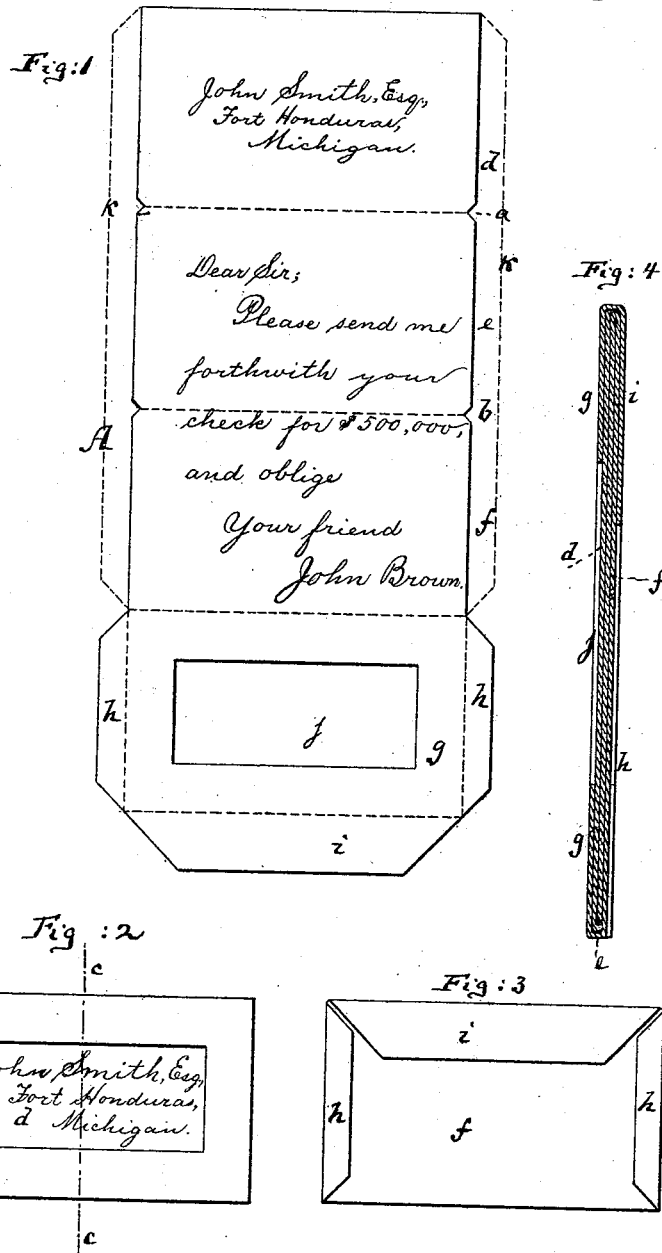 Fig: 1
John Smith, Esq,
Fort Honduras,
Michigan.
d
k
a
Dear Sir;
k
Please send me
e
forthwith your
b
check for $500,000,
A
and oblige
Your friend
f
John Brown.
h
j
g
h
i
Fig: 4
g
i
d
f
j
h
g
e
Fig: 2
c
ohn Smith, Esq,
Fort Honduras,
d Michigan.
c
Fig: 3
i
h
f
h